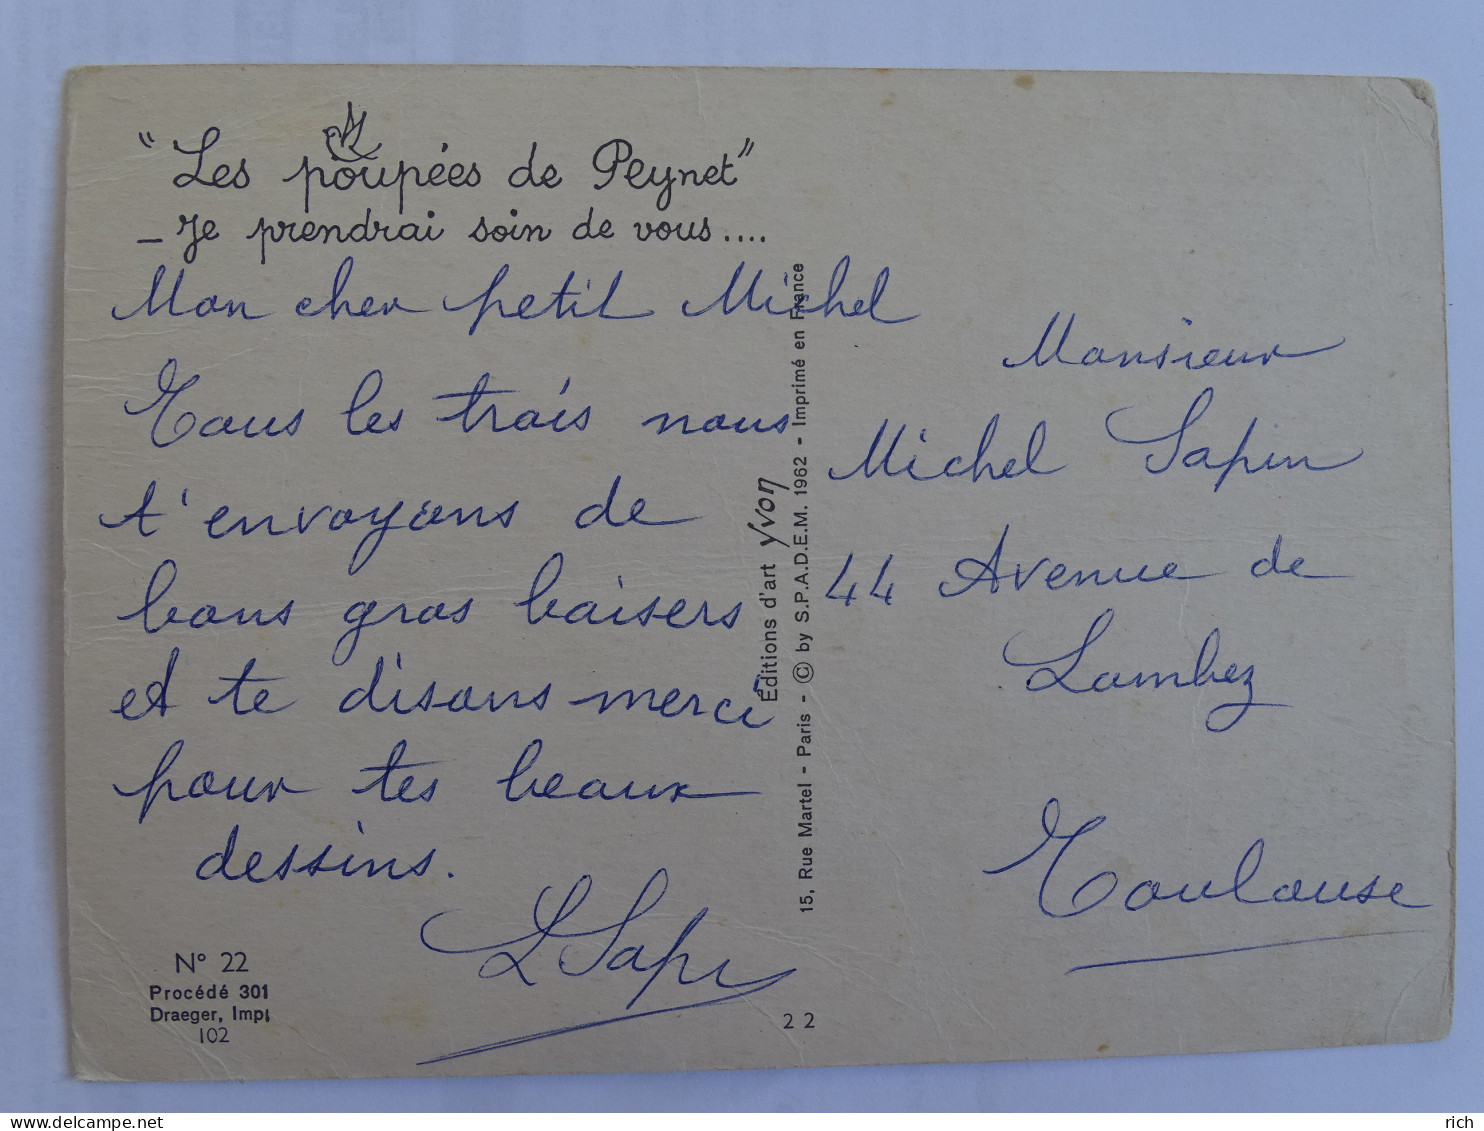 "Les poupées de Peynet"
– Je prendrai soin de vous....
Mon cher petit Michel
Tous les trois nous
t'envoyons de
bons gros baisers
et te disons merci
pour tes beaux
dessins.
N° 22
Procédé 301
Draeger, Imp.
102
Éditions d'art Yvon
15, Rue Martel - Paris - © by S.P.A.D.E.M. 1962 - Imprimé en France
22
Monsieur
Michel Sapin
44 Avenue de
Lombez
Toulouse
delcampe.net
rich